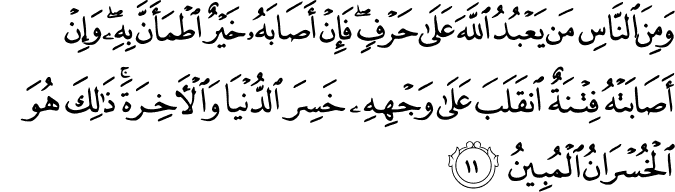 وَمِنَ ٱلنَّاسِ مَن يَعْبُدُ ٱللَّهَ عَلَىٰ حَرْفٍۢ ۖ فَإِنْ أَصَابَهُۥ خَيْرٌ ٱطْمَأَنَّ بِهِۦ ۖ وَإِنْ
أَصَابَتْهُ فِتْنَةٌ ٱنقَلَبَ عَلَىٰ وَجْهِهِۦ خَسِرَ ٱلدُّنْيَا وَٱلْـَٔاخِرَةَ ۚ ذَٰلِكَ هُوَ
ٱلْخُسْرَانُ ٱلْمُبِينُ ١١